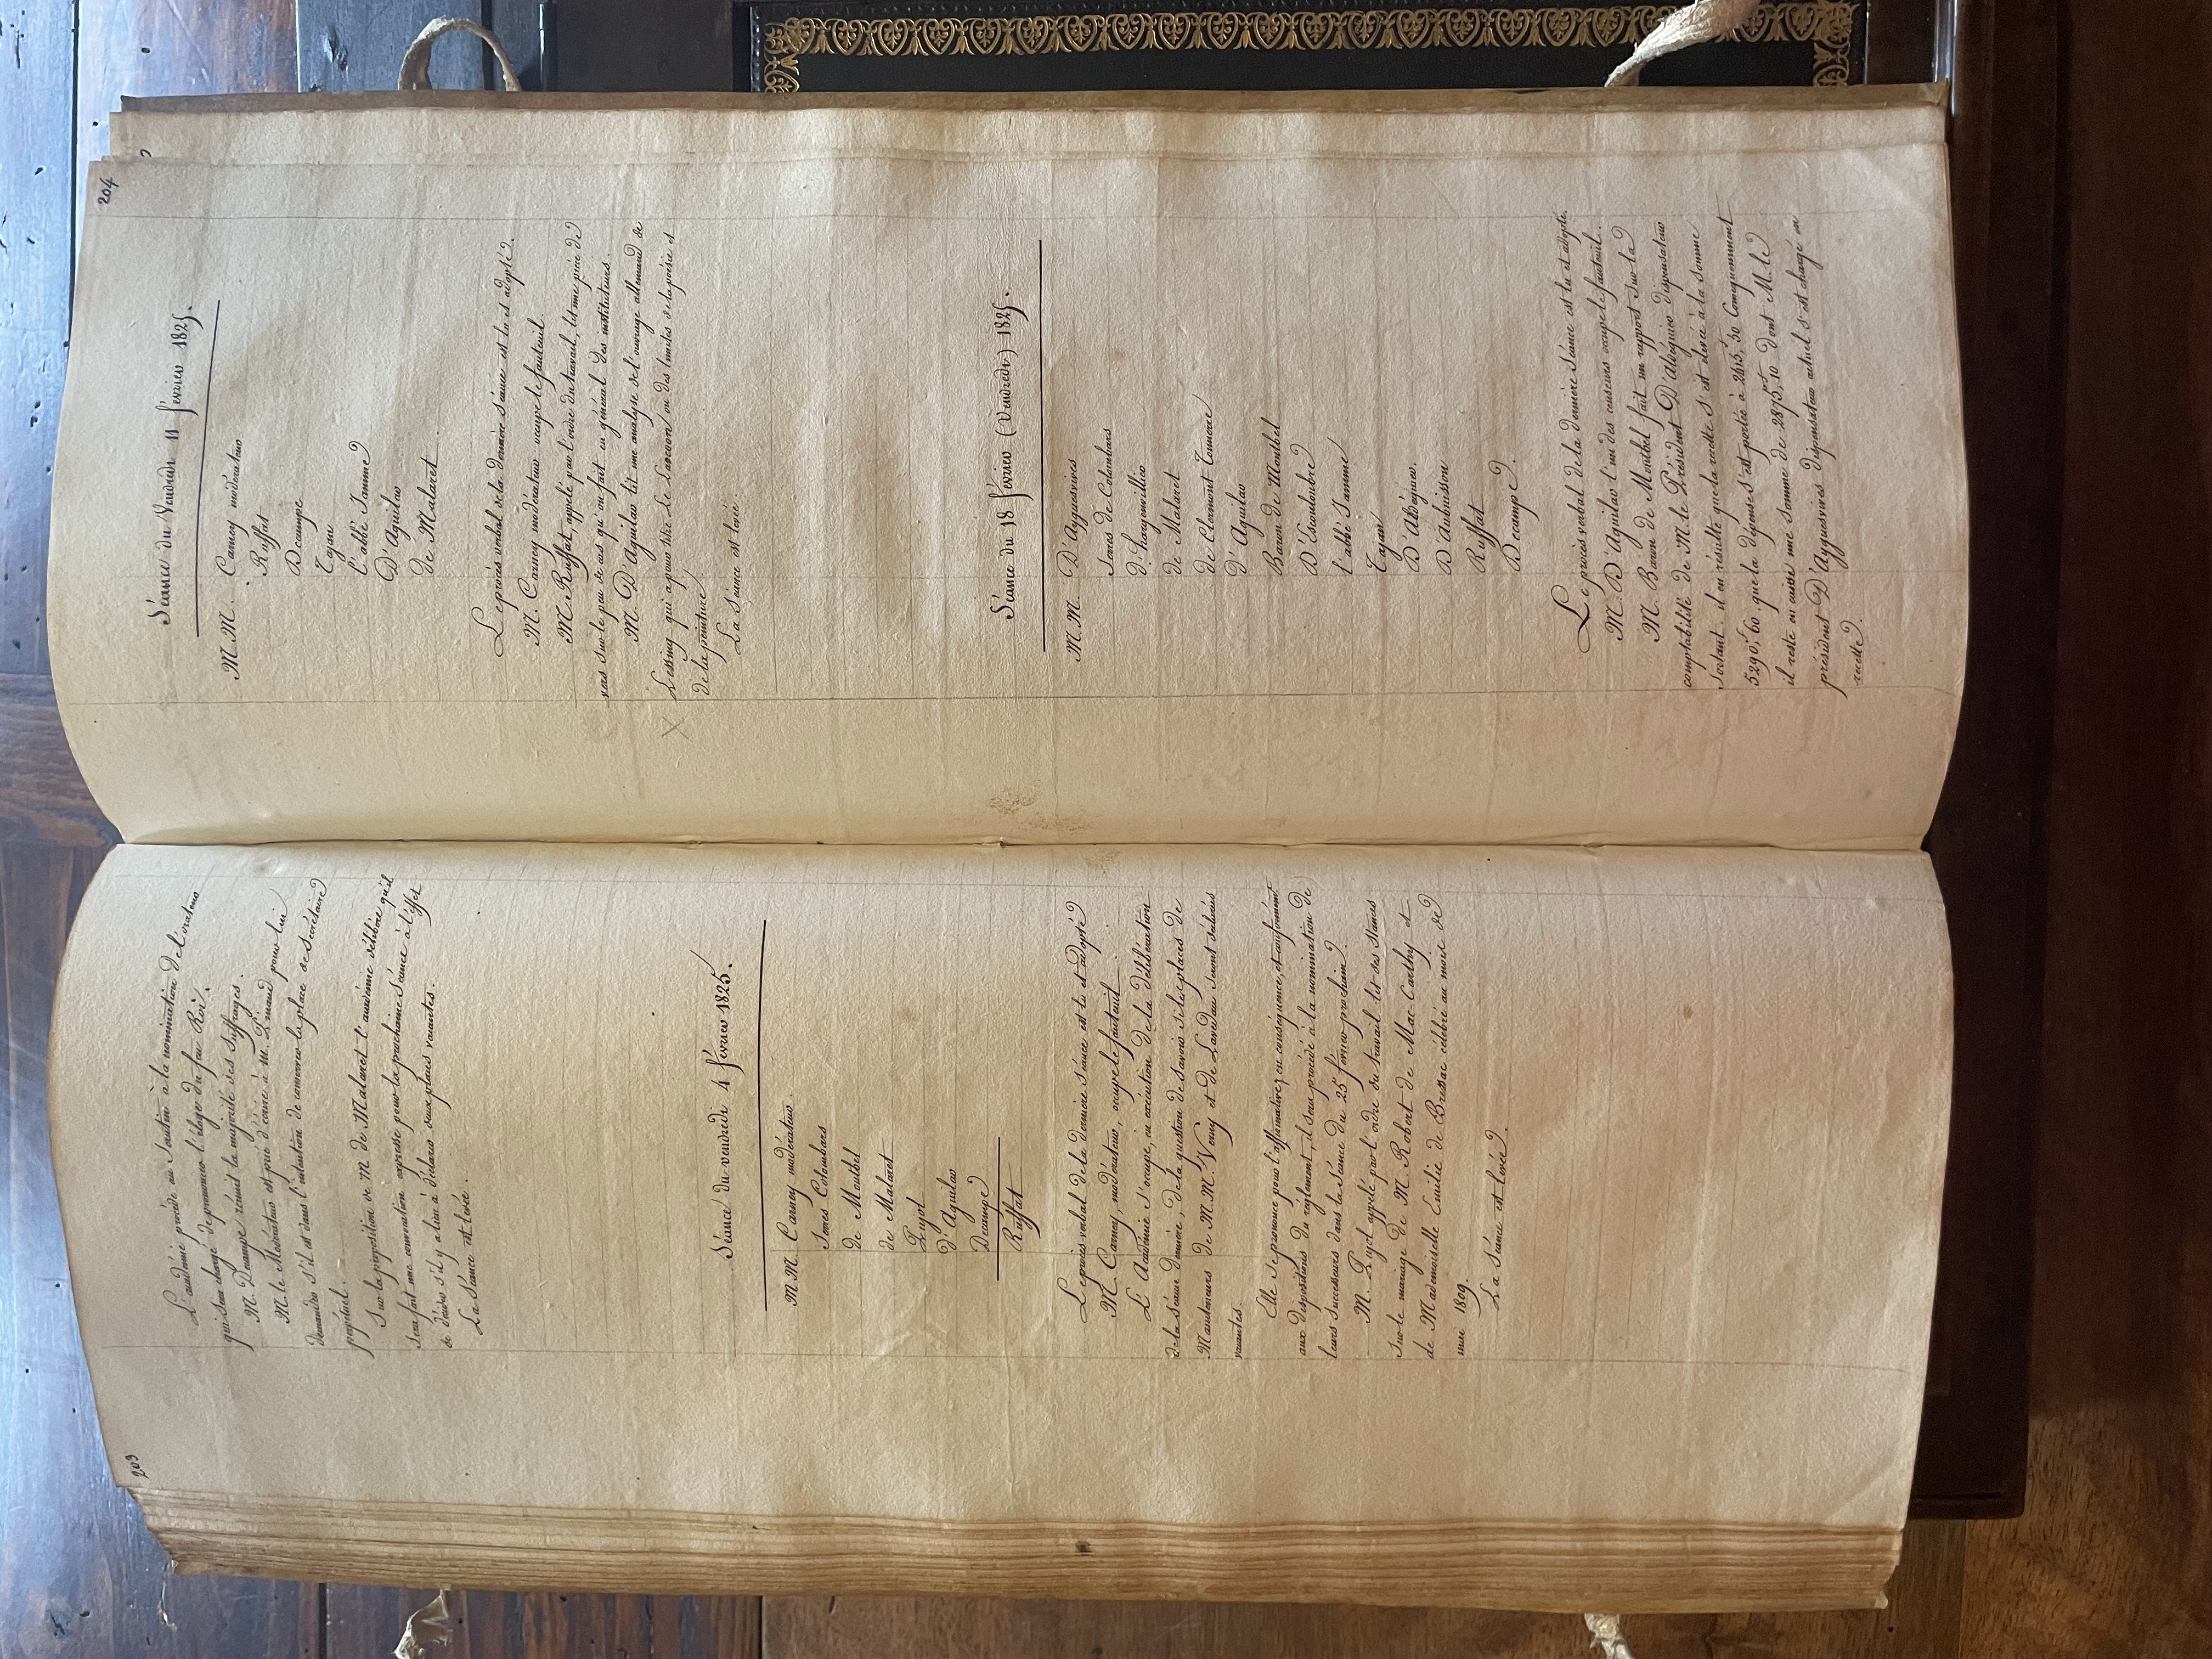 203
L'académie procède au Scrutin à la nomination de l'orateur
qui sera chargé de prononcer l'éloge du feu Roi.
M. Decampe réunit la majorité des Suffrages.
M. le Modérateur est prié d'écrire à M. Pinaud pour lui
demander s'il est dans l'intention de conserver la place de Secrétaire
perpétuel.
Sur la proposition de M de Malaret l'académie délibère qu'il
sera fait une convocation expresse pour la prochaine Séance à l'effet
de décider s'il y a lieu à déclarer deux places vacantes.
La Séance est levée.
Séance du vendredi 4 février 1825.
M.M. Carney modérateur.
Serres Colombars
de Montbel
de Malaret
Pujol
d'Aguilar
Decampe
Ruffat
Le procès verbal de la dernière Séance est lu et adopté
M. Carney, modérateur, occupe le fauteuil.
L'Académie s'occupe, en exécution de la délibération
de la Séance dernière, de la question de savoir si les places de
Mainteneurs de M.M. Verny et de Lavedan seront déclarées
vacantes.
Elle se prononce pour l'affirmative; en conséquence, et conformément
aux dispositions du règlement, il sera procédé à la nomination de
leurs Successeurs dans la Séance du 25 février prochain.
M. Pujol appelé par l'ordre du travail lit des Stances
sur le mariage de M. Robert de Mac-Carthy et
de Mademoiselle Emilie de Brassac célébré au mois de
mars 1809.
La Séance est levée.
204
Séance du Vendredi 11 février 1825.
M.M. Carney modérateur
Ruffat
Decampe
Tajan
l'abbé Jamme
D'Aguilar
de Malaret
Le procès verbal de la dernière Séance est lu et adopté.
M. Carney modérateur occupe le fauteuil.
M. Ruffat, appelé par l'ordre du travail, lit une pièce de
vers sur le peu de cas qu'on fait en général des instituteurs.
M. D'Aguilar lit une analyse de l'ouvrage allemand de
X Lessing qui a pour titre le Laocoon ou des limites de la poésie et
de la peinture.
La Séance est levée.
Séance du 18 février (Vendredi) 1825.
M.M. D'Ayguesvives
Serres de Colombars
d'hargenvillier
de Malaret
de Clermont Tonnerre
D'Aguilar
Baron de Montbel
D'Escouloubre
l'abbé Jamme
Tajan
D'Aldéguier.
D'Aubuisson
Ruffat
Decampe.
Le procès verbal de la dernière Séance est lu et adopté.
M. D'Aguilar l'un des censeurs occupe le fauteuil.
M. Baron de Montbel fait un rapport sur la
comptabilité de M. le Président D'Aldéguier dispensateur
sortant. il en résulte que la recette s'est élevée à la somme
5290,f 60 que la dépense s'est portée à 2415,f 50 Conséquemment
il reste en caisse une Somme de 2875,f 10 dont M. le
président D'Ayguesvives dispensateur actuel s'est chargé en
recette.